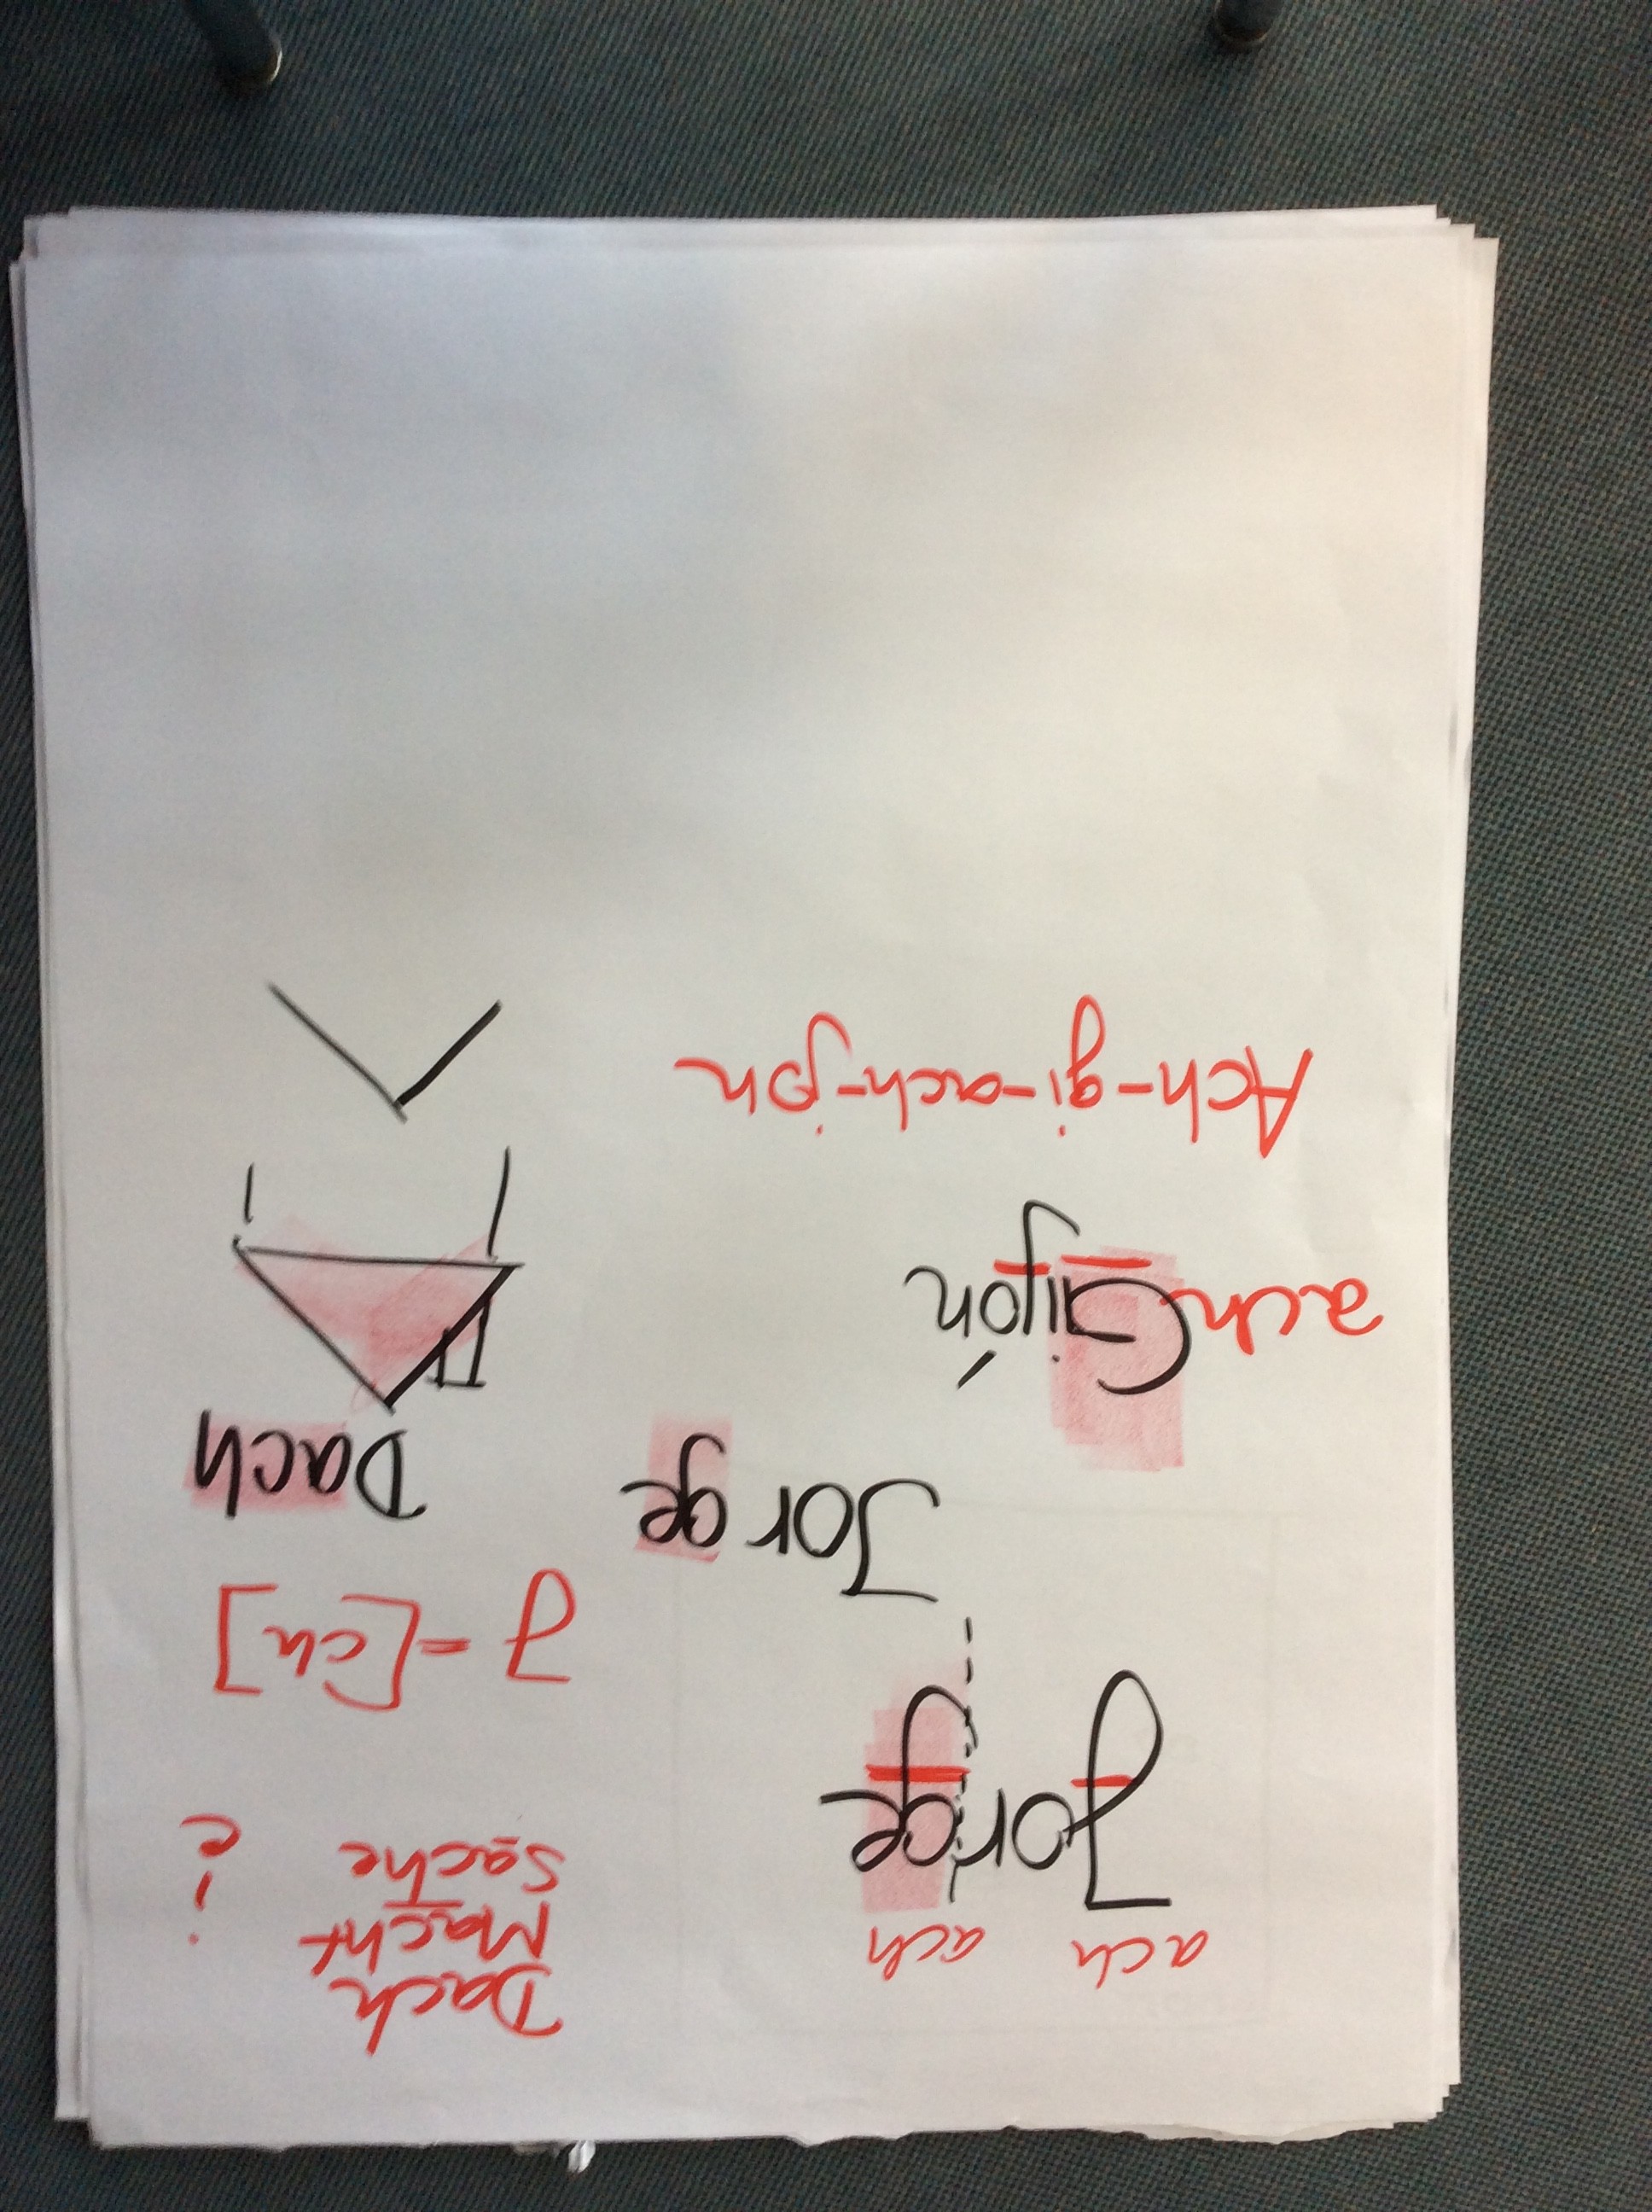 ach ach
Jorge
Jorge
achGijón
Ach-gi-ach-jon
Dach
Macht
Sache
i
e
J=[ch]
Dach